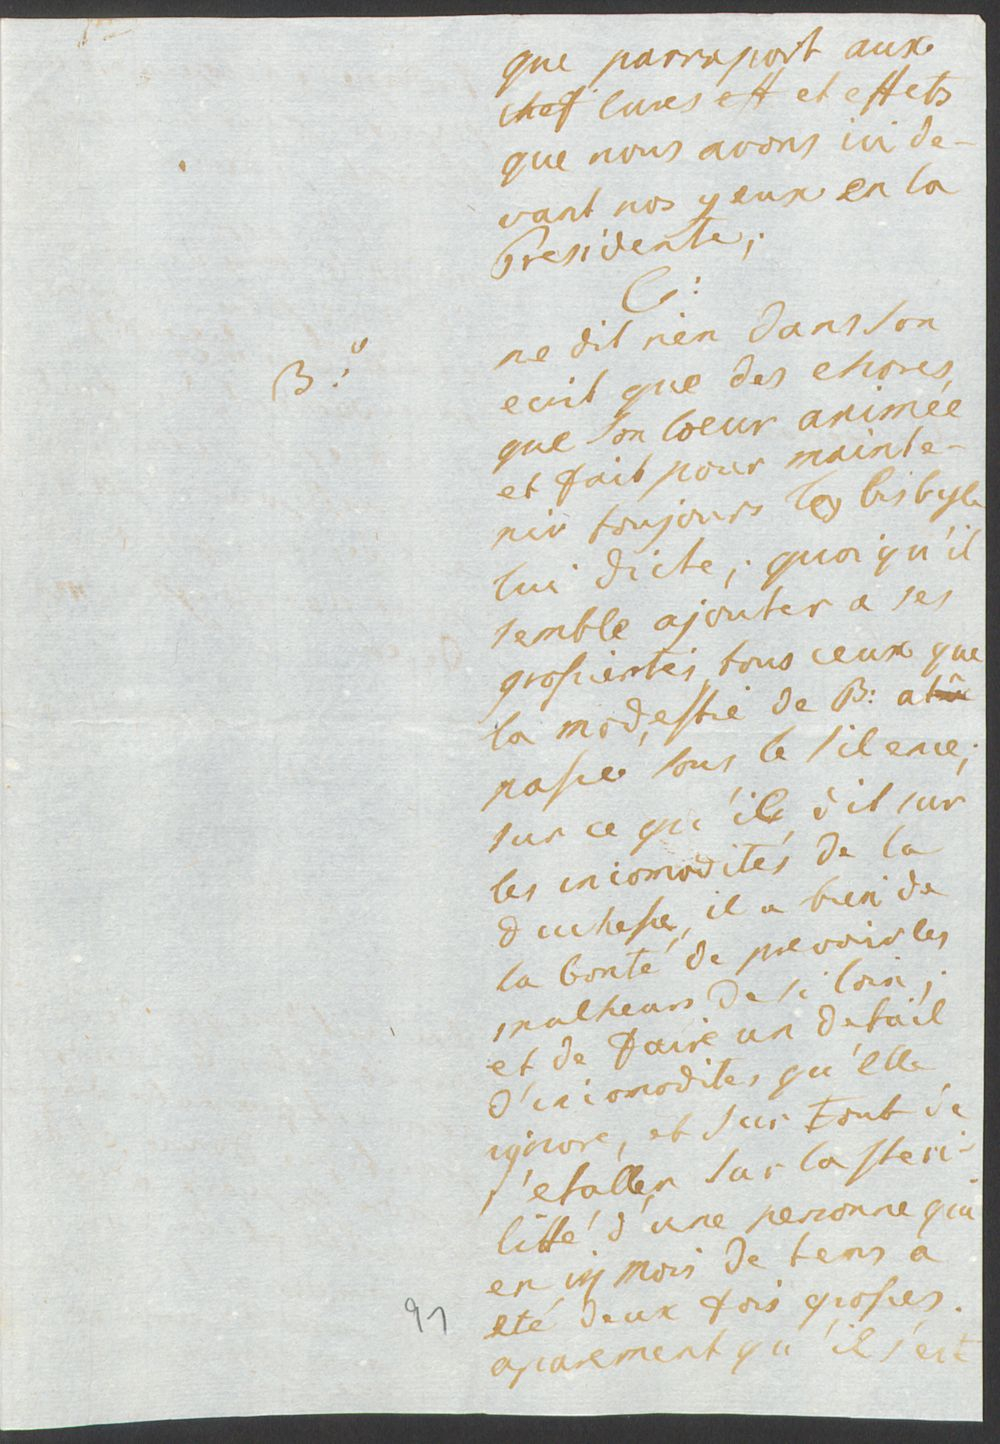 que parraport aux
chef lures eff et effets
que nous avons ici de-
vant nos yeux en la
Presidente;
C:
B:
ne dit rien dans son
ecrit que des choses
que son coeur animée
et fait pour mainte-
nir toujours les bisbyle
lui dicte; quoiqu'il
semble ajouter a ses
grosierites tous ceux que
la modestie de B: a
passee sous le silence;
sur ce qu'il dit sur
les incomodités de la
duchesse, il a bien de
la bonté de prevoir les
malheurs de si loin;
et de faire un detail
d'incomodites qu'elle
ignore, et sur tout de
s'etaller sur la steri-
litté d'une personne qui
en mois de tems a
eté deux fois grosses.
aparement qu'il s'est
91